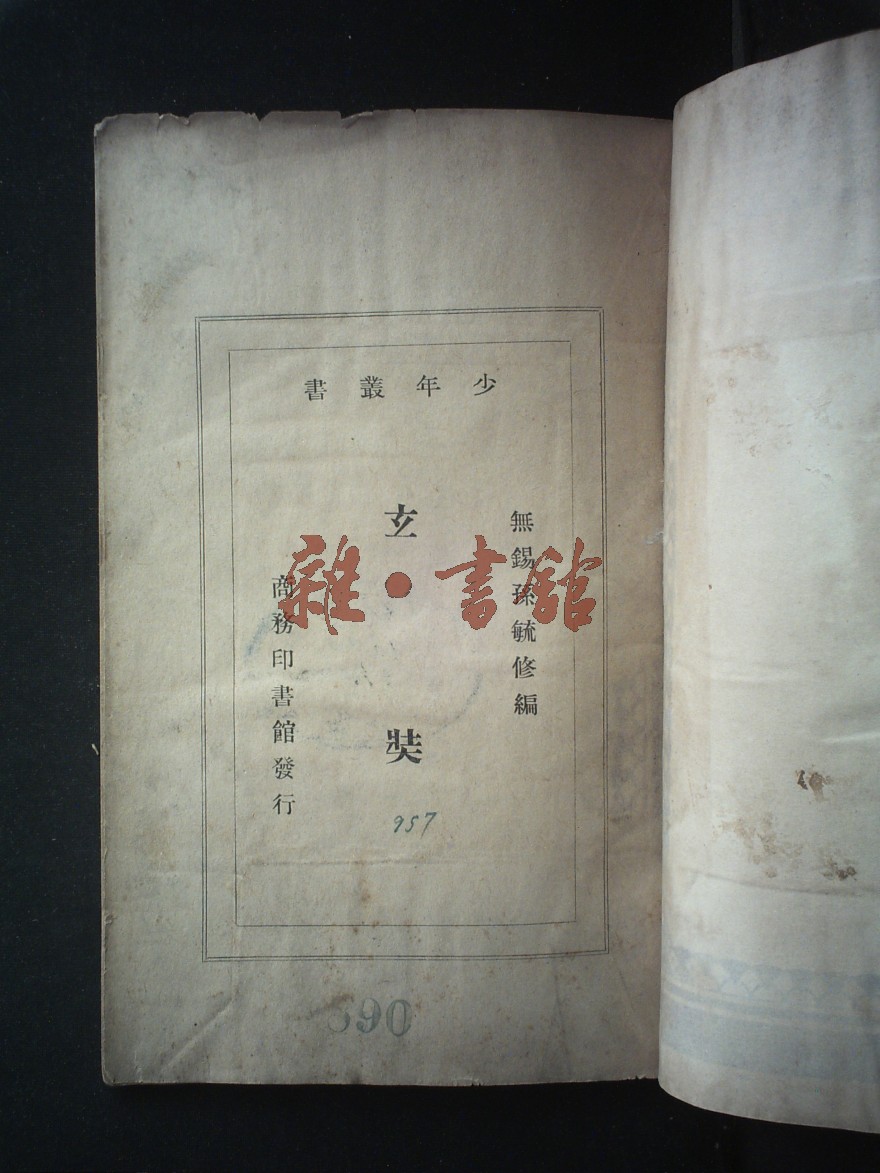 少年叢書
無錫孫毓修編
玄奘
商務印書館發行
957
雜·書館